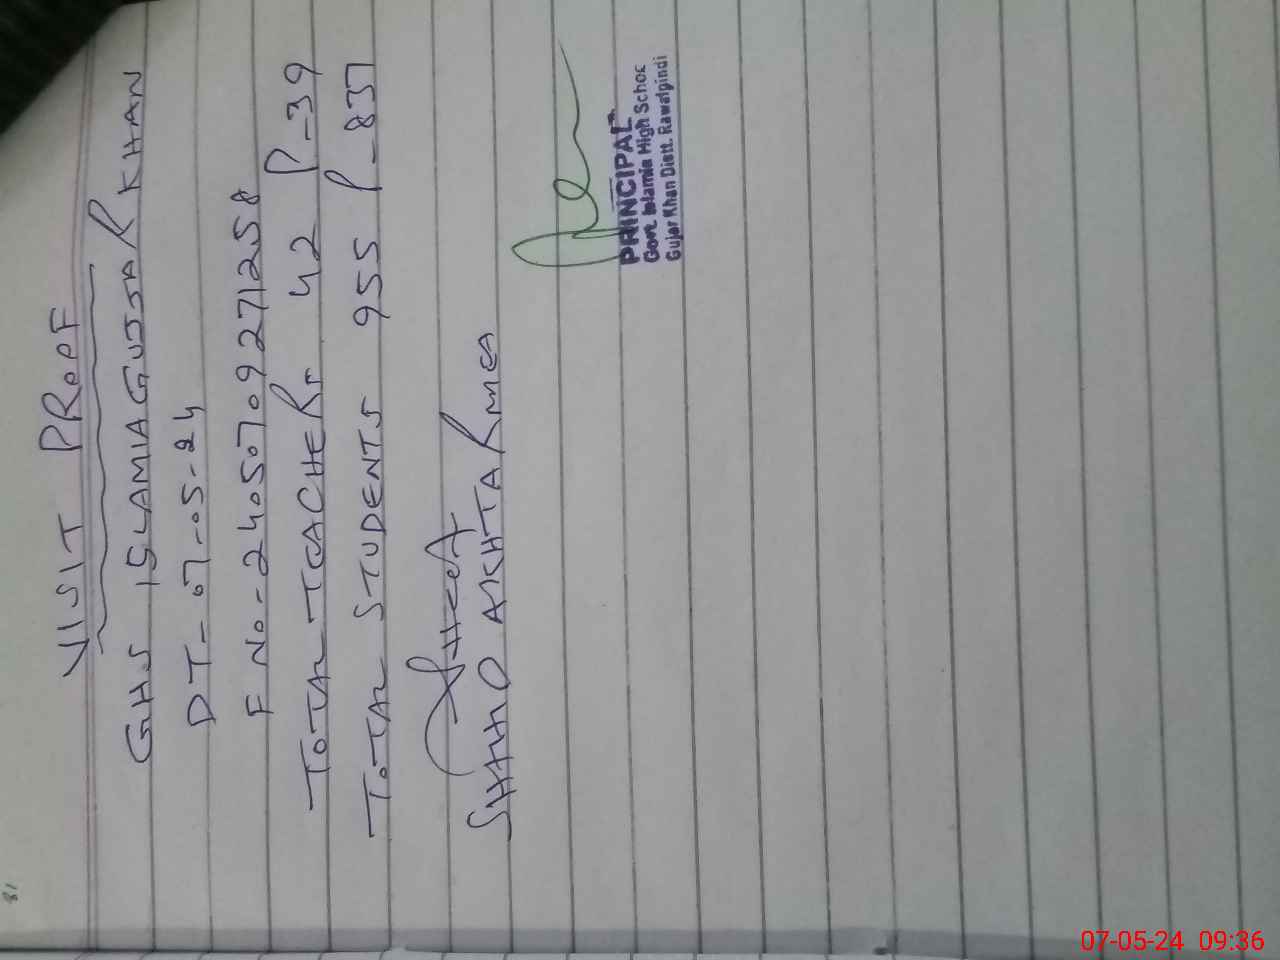 81
VISIT PROOF
GHS ISLAMIA GUJJAR KHAN
DT-07-05-24
F No-24050709271258
TOTAL TEACHERS 42 P-39
TOTAL STUDENTS 955 P-837
SHAHID AKHTAR MEA
PRINCIPAL
Govt. Islamia High Schoo
Gujar Khan Distt. Rawalpindi
07-05-24 09:36